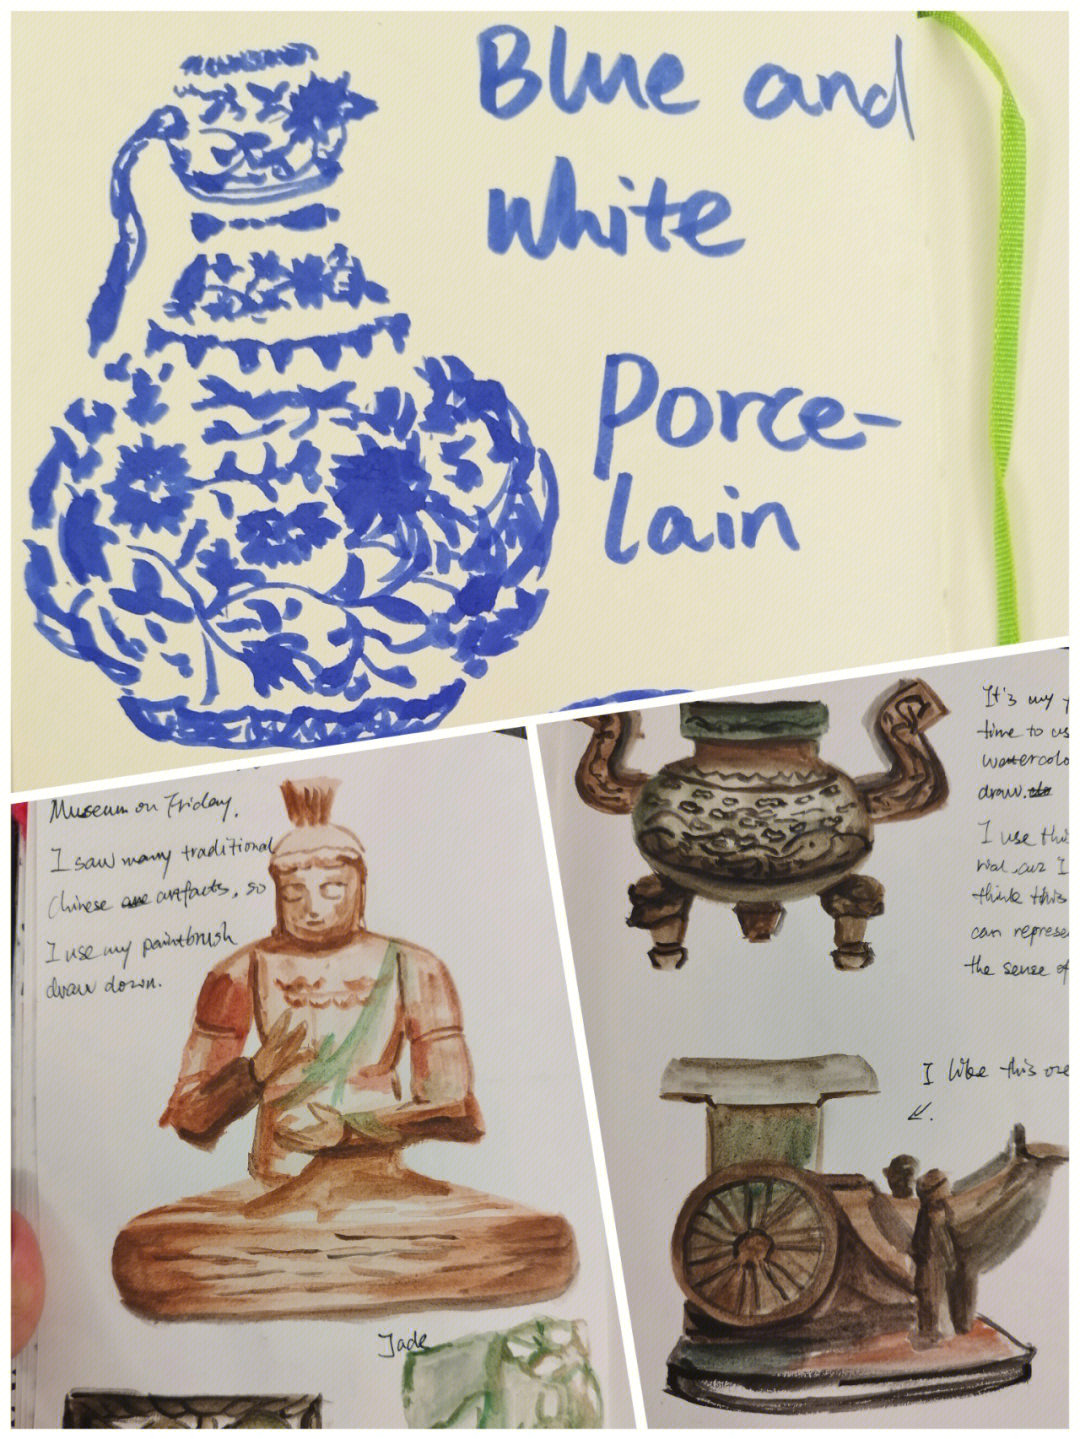 Blue and
White
Porce-
lain
Museum on Friday.
I saw many traditional
Chinese artifacts, so
I use my paintbrush
draw down.
Jade
It's my
time to us
watercolo
draw.
I use thi
rial, cuz I
think this
can represe
the sense of
I like this one